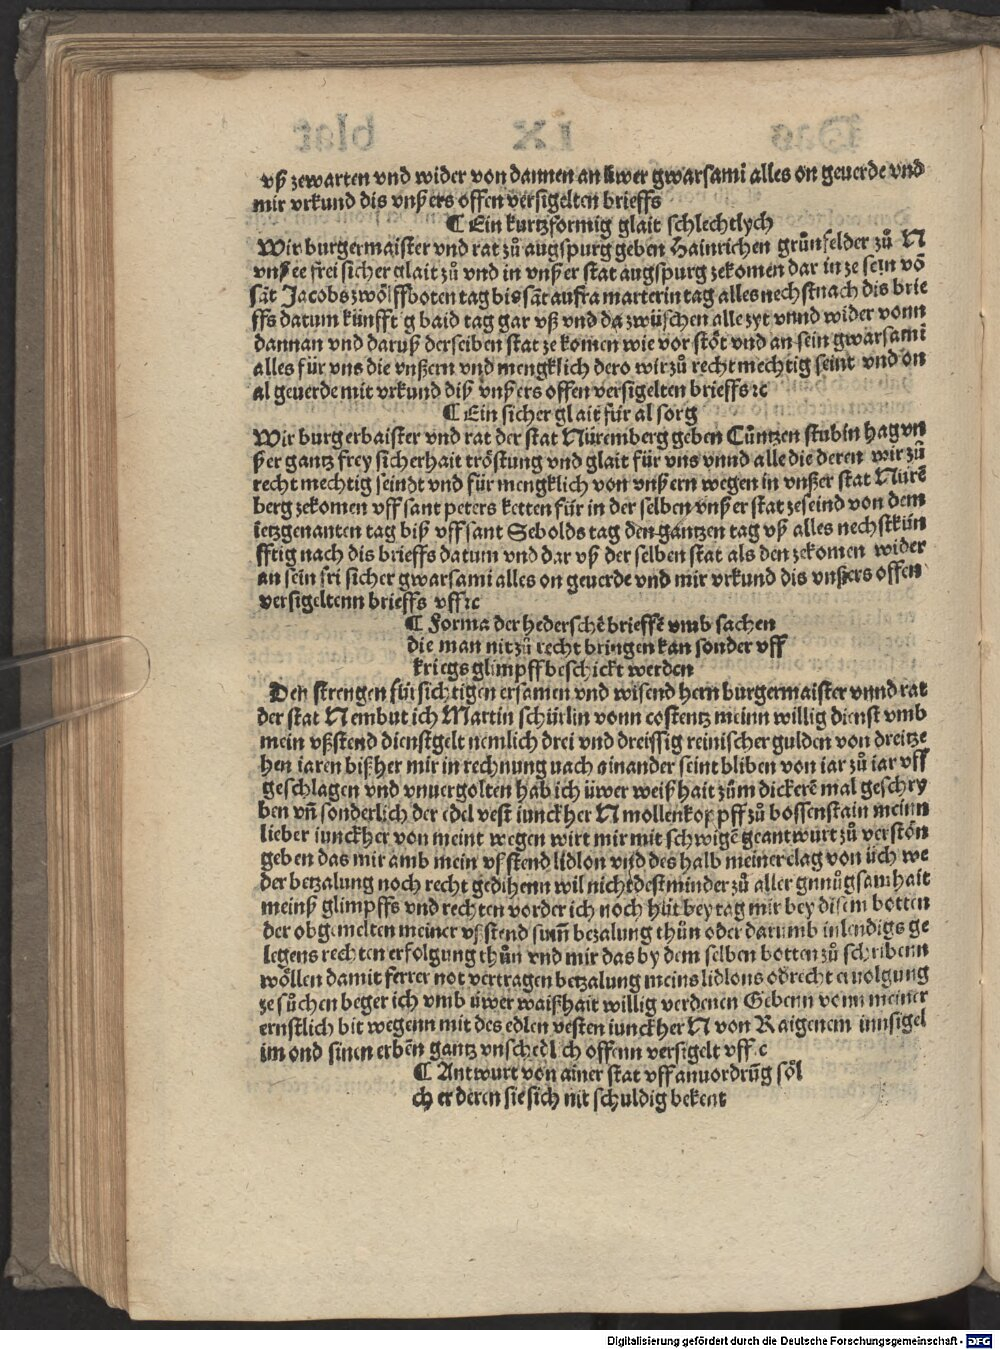 vß zewarten vnd wider von dannen an üwer gwarsami alles on geuerde vnd
mir vrkund dis vnßers offen versigelten brieffs
¶ Ein kurtzformig glait schlechtlych
Wir burgermaister vnd rat zů augspurg geben Hainrichen grůnfelder zů N
vnßee frei sicher glait zů vnd in vnßer stat augspurg zekomen dar in ze sein vō
sāt Jacobs zwőlffboten tag bis sāt aufra marterin tag alles nechst nach dis brie
ffs datum künfft g baid tag gar vß vnd da zwüschen alle zyt vnnd wider vonn
dannan vnd daruß derselben stat ze komen wie vor stőt vnd an sein gwarsami
alles für vns die vnßern vnd mengklich dero wir zů recht mechtig seint vnd on
al geuerde mit vrkund diß vnßers offen versigelten brieffs ⁊c
¶ Ein sicher glait für al sorg
Wir burgerbaister vnd rat der stat Nüremberg geben Cůntzen stubin hag vn
ßer gantz frey sicherhait tröstung vnd glait für vns vnnd alle die deren wir zů
recht mechtig seindt vnd für mengklich von vnßern wegen in vnßer stat Nürē
berg zekomen vff sant peters ketten für in der selben vnßer stat zeseind von dem
ietzgenanten tag biß vff sant Sebolds tag den gantzen tag vß alles nechstkün
fftig nach dis brieffs datum vnd dar vß der selben stat als den zekomen wider
an sein fri sicher gwarsami alles on geuerde vnd mir vrkund dis vnßers offen
versigeltenn brieffs vff ⁊c
¶ Forma der hederschē brieffē vmb sachen
die man nit zů recht bringen kan sonder vff
kriegs glimpff beschickt werden
Den strengen fürsichtigen ersamen vnd wisend hern burgermaister vnnd rat
der stat N embut ich Martin schürlin vonn costentz meinn willig dienst vmb
mein vßstend dienstgelt nemlich drei vnd dreissig reinischer gulden von dreitze
hen iaren bißher mir in rechnung nach ainander seint bliben von iar zů iar vff
geschlagen vnd vnuergolten hab ich üwer weißhait zům dickerē mal geschry
ben vn̄ sonderlich der edel vest iunckher N mollenkopff zů bossenstain meinn
lieber iunckher von meint wegen wirt mir mit schwigē geantwurt zů verstőn
geben das mir amb mein vßstend lidlon vnd des halb meiner clag von üch we
der betzalung noch recht gedihenn wil nichtdestminder zů aller gnnůgsamhait
meinß glimpffs vnd rechten vorder ich noch hüt bey tag mir bey disem botten
der obgemelten meiner vßstend sum̄ bezalung thůn oder darumb inlendigs ge
legens rechten erfolgung thůn vnd mir das by dem selben botten zů schribenn
wőllen damit ferrer not vertragen betzalung meins lidlons od recht ervolgung
ze sůchen beger ich vmb üwer waißhait willig verdenen Gebenn vonn meiner
ernstlich bit wegenn mit des edlen vesten iunckher N von Raigenem innsigel
im ond sinen erben gantz vnschedlich offenn versigelt vff ⁊c
¶ Antwurt von ainer stat vff anuordrūg sől
cher deren sie sich nit schuldig bekent